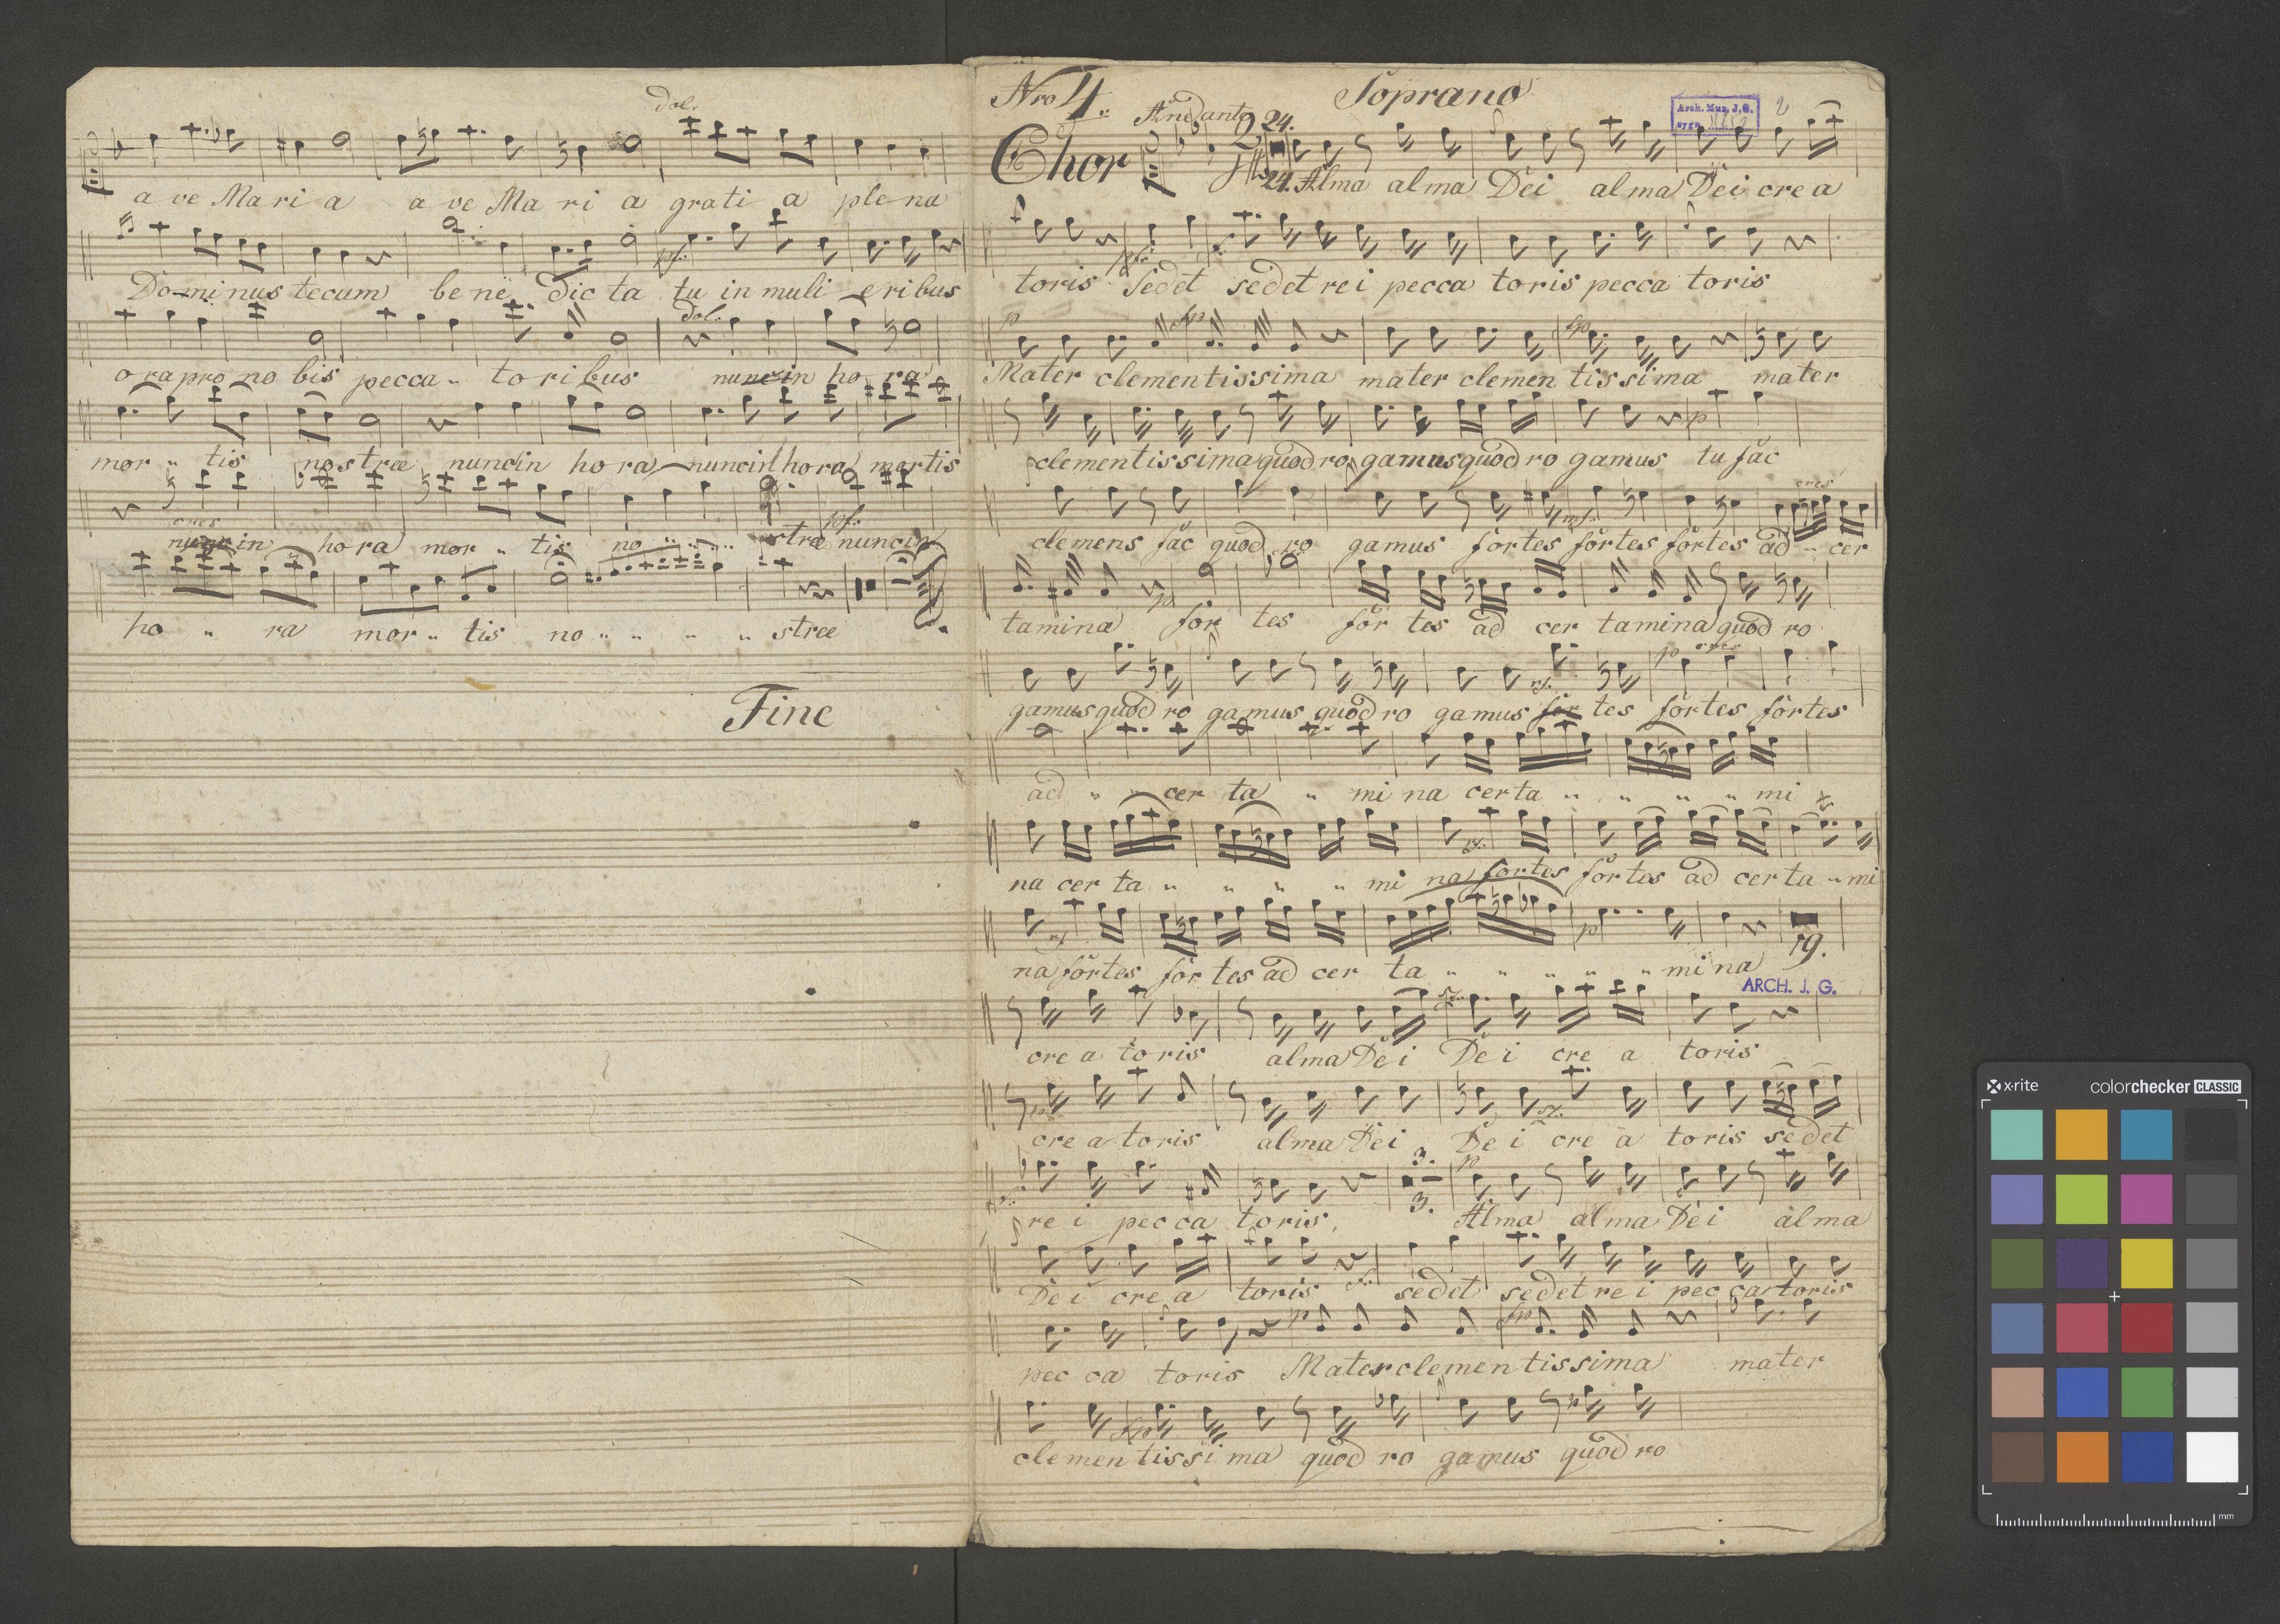 dol.
a ve Ma ri a a ve Ma ri a grati a ple na
Do mi nus tecum be ne dic ta tu in muli eribus
pf.
dol.
o ra pro no bis pecca " to ri bus nunc in ho ra
mor " tis nostræ nunc in ho ra nunc in hora mortis
cres
pf.
nunc in ho ra mor " tis no " " " stræ nunc in
ho " ra mor " tis no " " " " stræ
Fine
Nro 4. Soprano
Andante
Arch. Muz. J. G.
sygn.
Chor 24. 24. Alma alma Dei alma Dei cre a
toris sedet sedet rei pecca toris pecca toris
p fp fp
Mater clementissima mater clemen tissima mater
p
clementissima quod ro gamus quod ro gamus tu fac
cres
mf.
clemens fac quod ro gamus fortes fortes fortes ad " cer
p
tamina for tes for tes ad cer tamina quod ro
p cres
gamus quod ro gamus quod ro gamus for tes fortes fortes
ad " " cer ta " mi na certa " " " " mi
na cer ta " " " " mi na fortes fortes ad certa " mi
p 19.
na fortes fortes ad cer ta " " " " " mina
ARCH. J. G.
cre a toris alma Dei Dei cre a toris
cre a toris alma Dei Dei cre a toris sedet
3. p
3.
re i pecca toris, Alma alma Dei alma
Dei cre a toris sedet sedet re i pec ca toris
p fp
pec ca toris Mater clementissima mater
clementissima quod ro gamus quod ro
x-rite colorchecker CLASSIC
mm